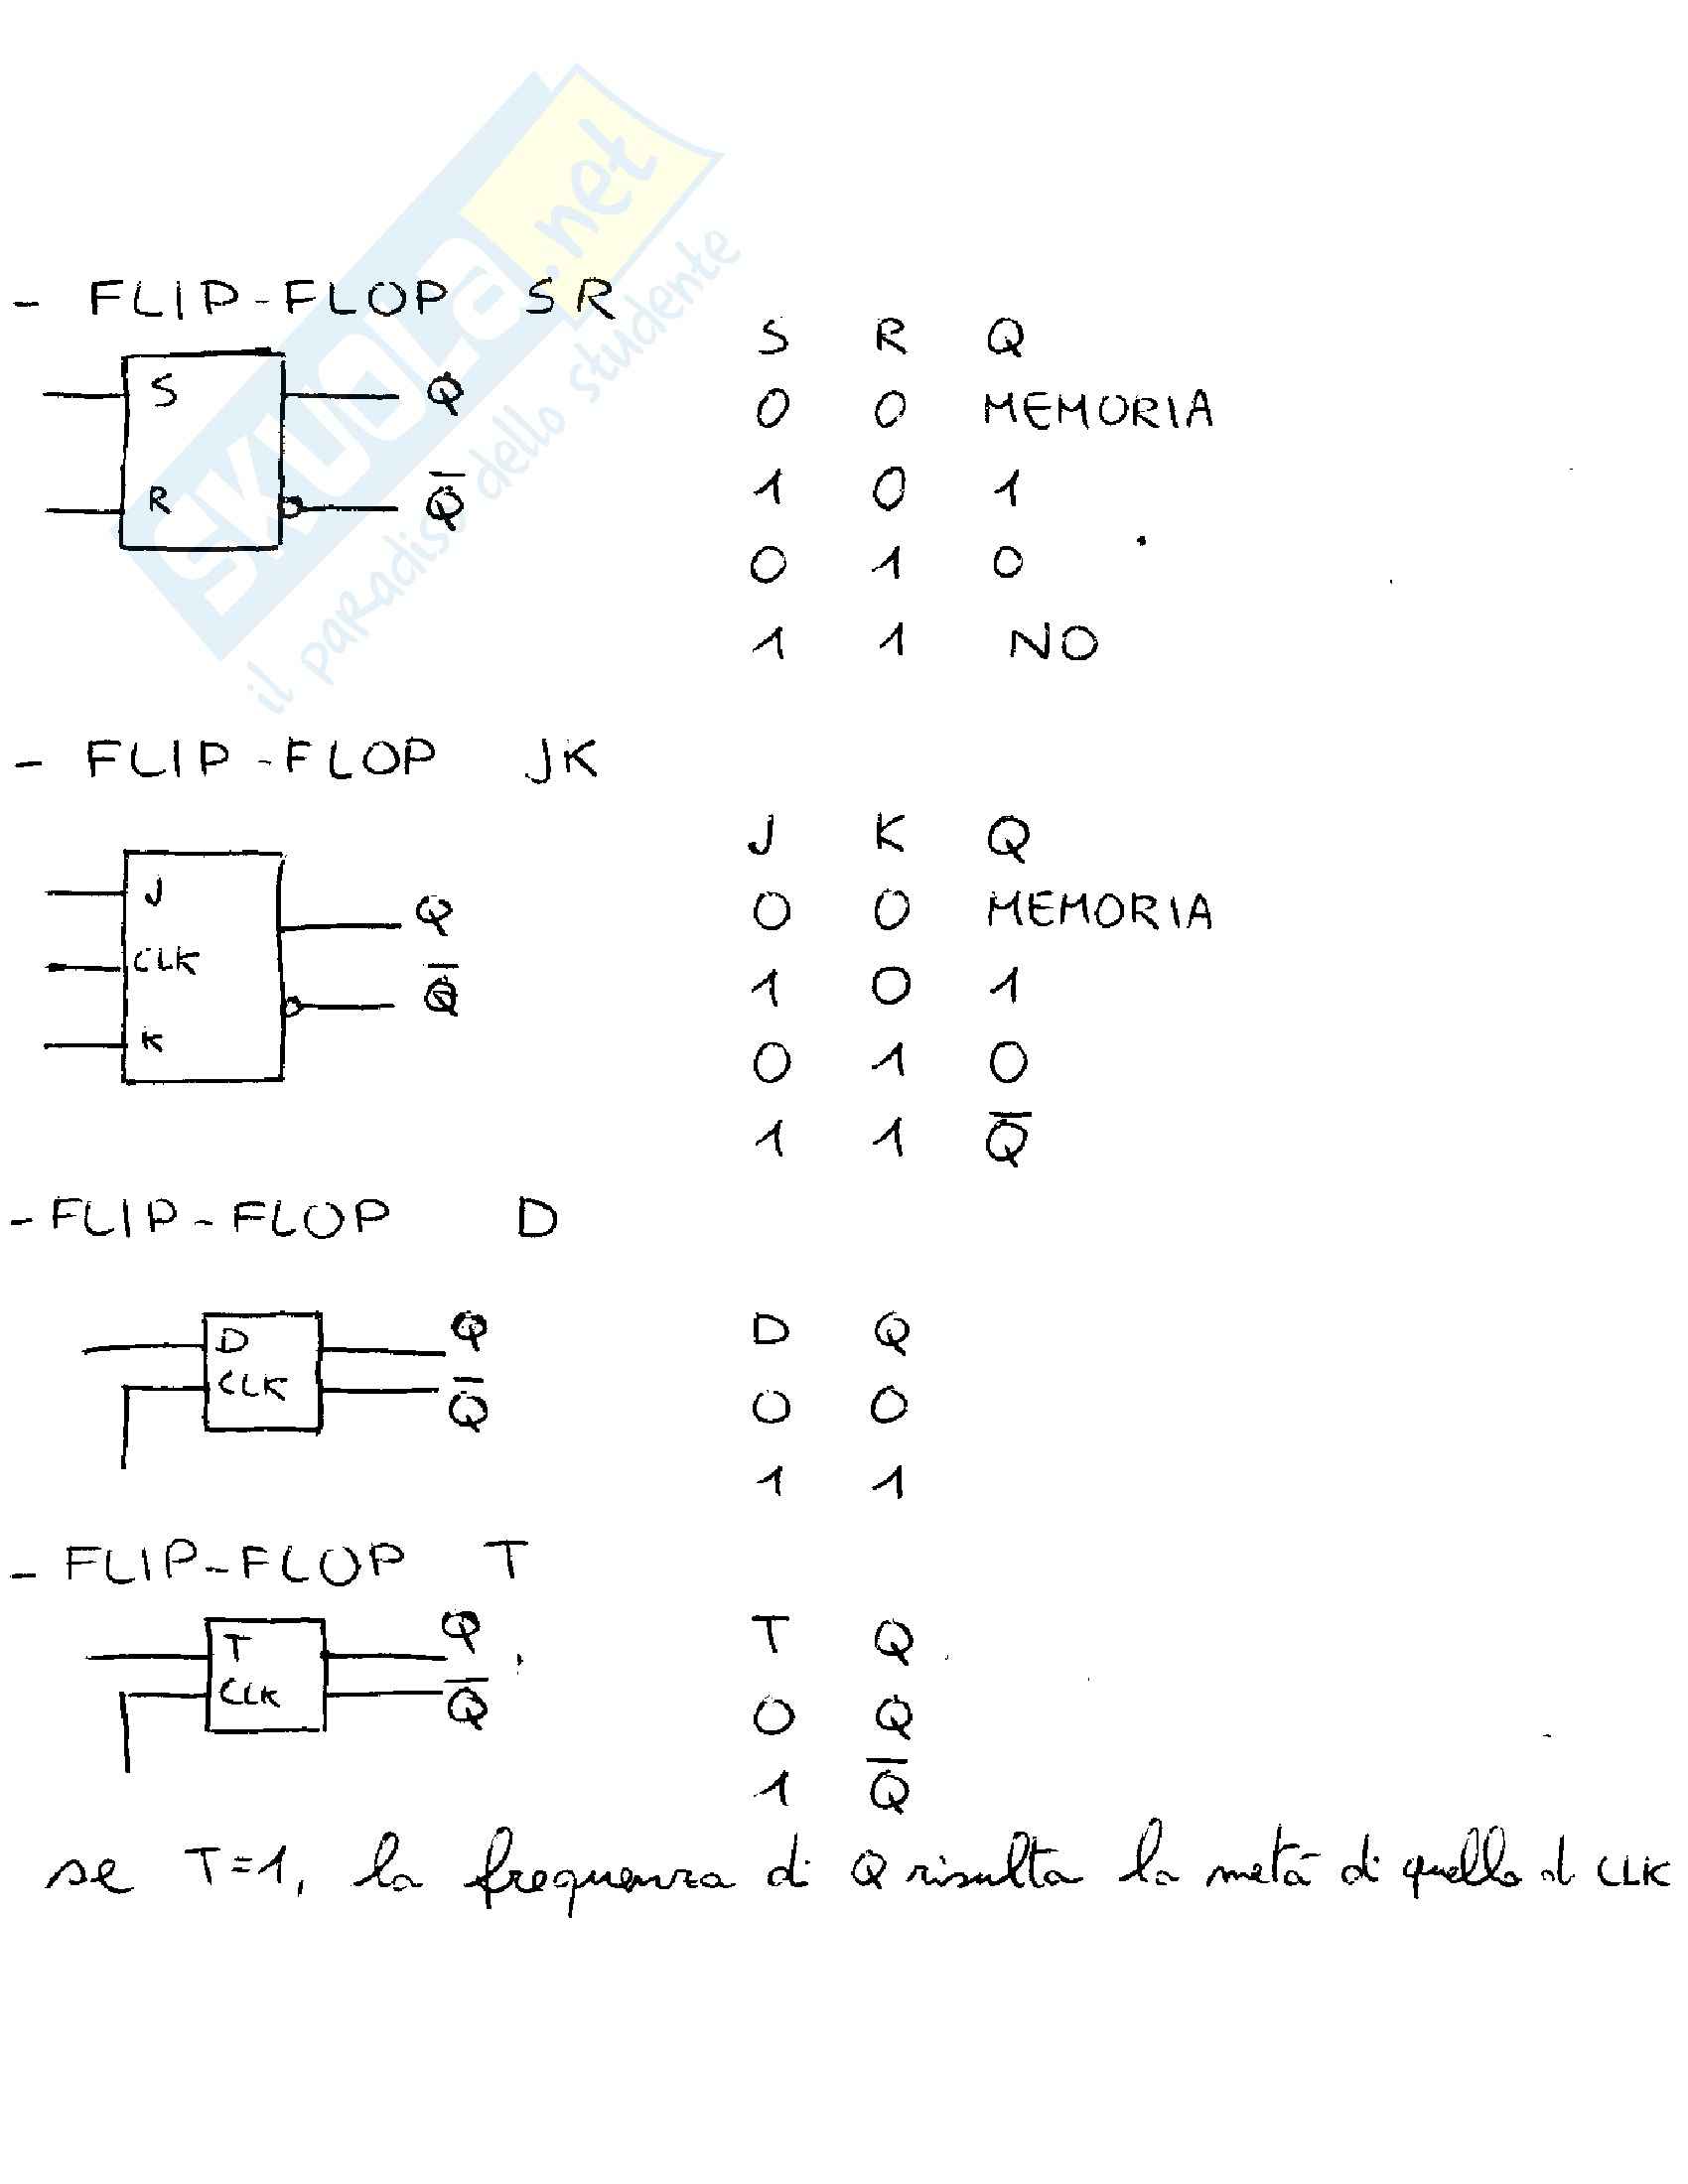 - FLIP-FLOP SR
S Q
R Q̅
S R Q
0 0 MEMORIA
1 0 1
0 1 0
1 1 NO
- FLIP-FLOP JK
J Q
CLK
K Q̅
J K Q
0 0 MEMORIA
1 0 1
0 1 0
1 1 Q̅
- FLIP-FLOP D
D Q
CLK Q̅
D Q
0 0
1 1
- FLIP-FLOP T
T Q
CLK Q̅
T Q
0 Q
1 Q̅
se T=1, la frequenza di Q risulta la metà di quello di CLK
SKUOLa.net
il paradiso dello studente